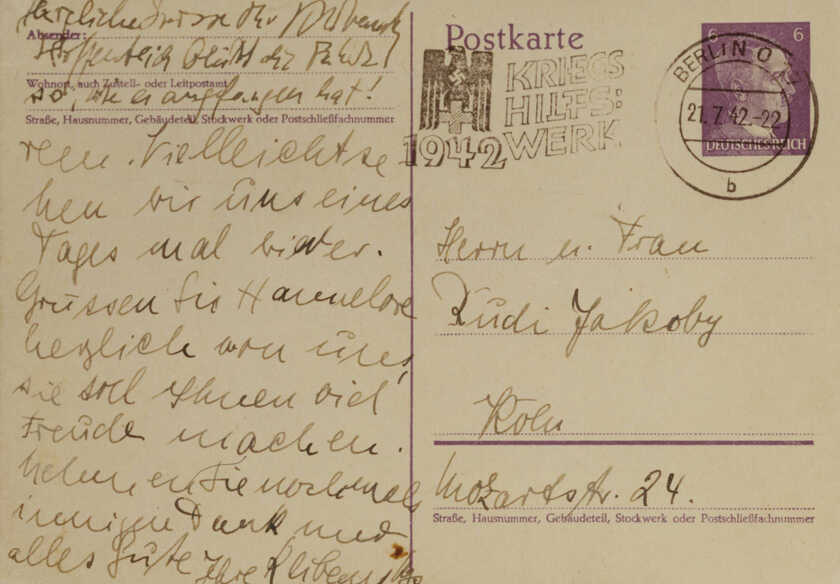 Herzliche Grüsse Ihr
Absender:
Hoffentlich bleibt die
Wohnort, auch Zustell- oder Leitpostamt
so, wie er angefangen hat!
Straße, Hausnummer, Gebäudeteil, Stockwerk oder Postschließfachnummer
ren. Vielleicht se
hen wir uns eines
Tages mal wieder.
Grüssen Sie Hannelore
herzlich von uns,
sie soll Ihnen viel
Freude machen.
Nehmen Sie nochmals
innigen Dank und
alles Gute
Ihre
Postkarte
KRIEGS
HILFS:
WERK
1942
BERLIN O
21.7.42.-22
b
6 6
DEUTSCHES REICH
Herrn u. Frau
Rudi Jakoby
Köln
Mozartstr. 24.
Straße, Hausnummer, Gebäudeteil, Stockwerk oder Postschließfachnummer